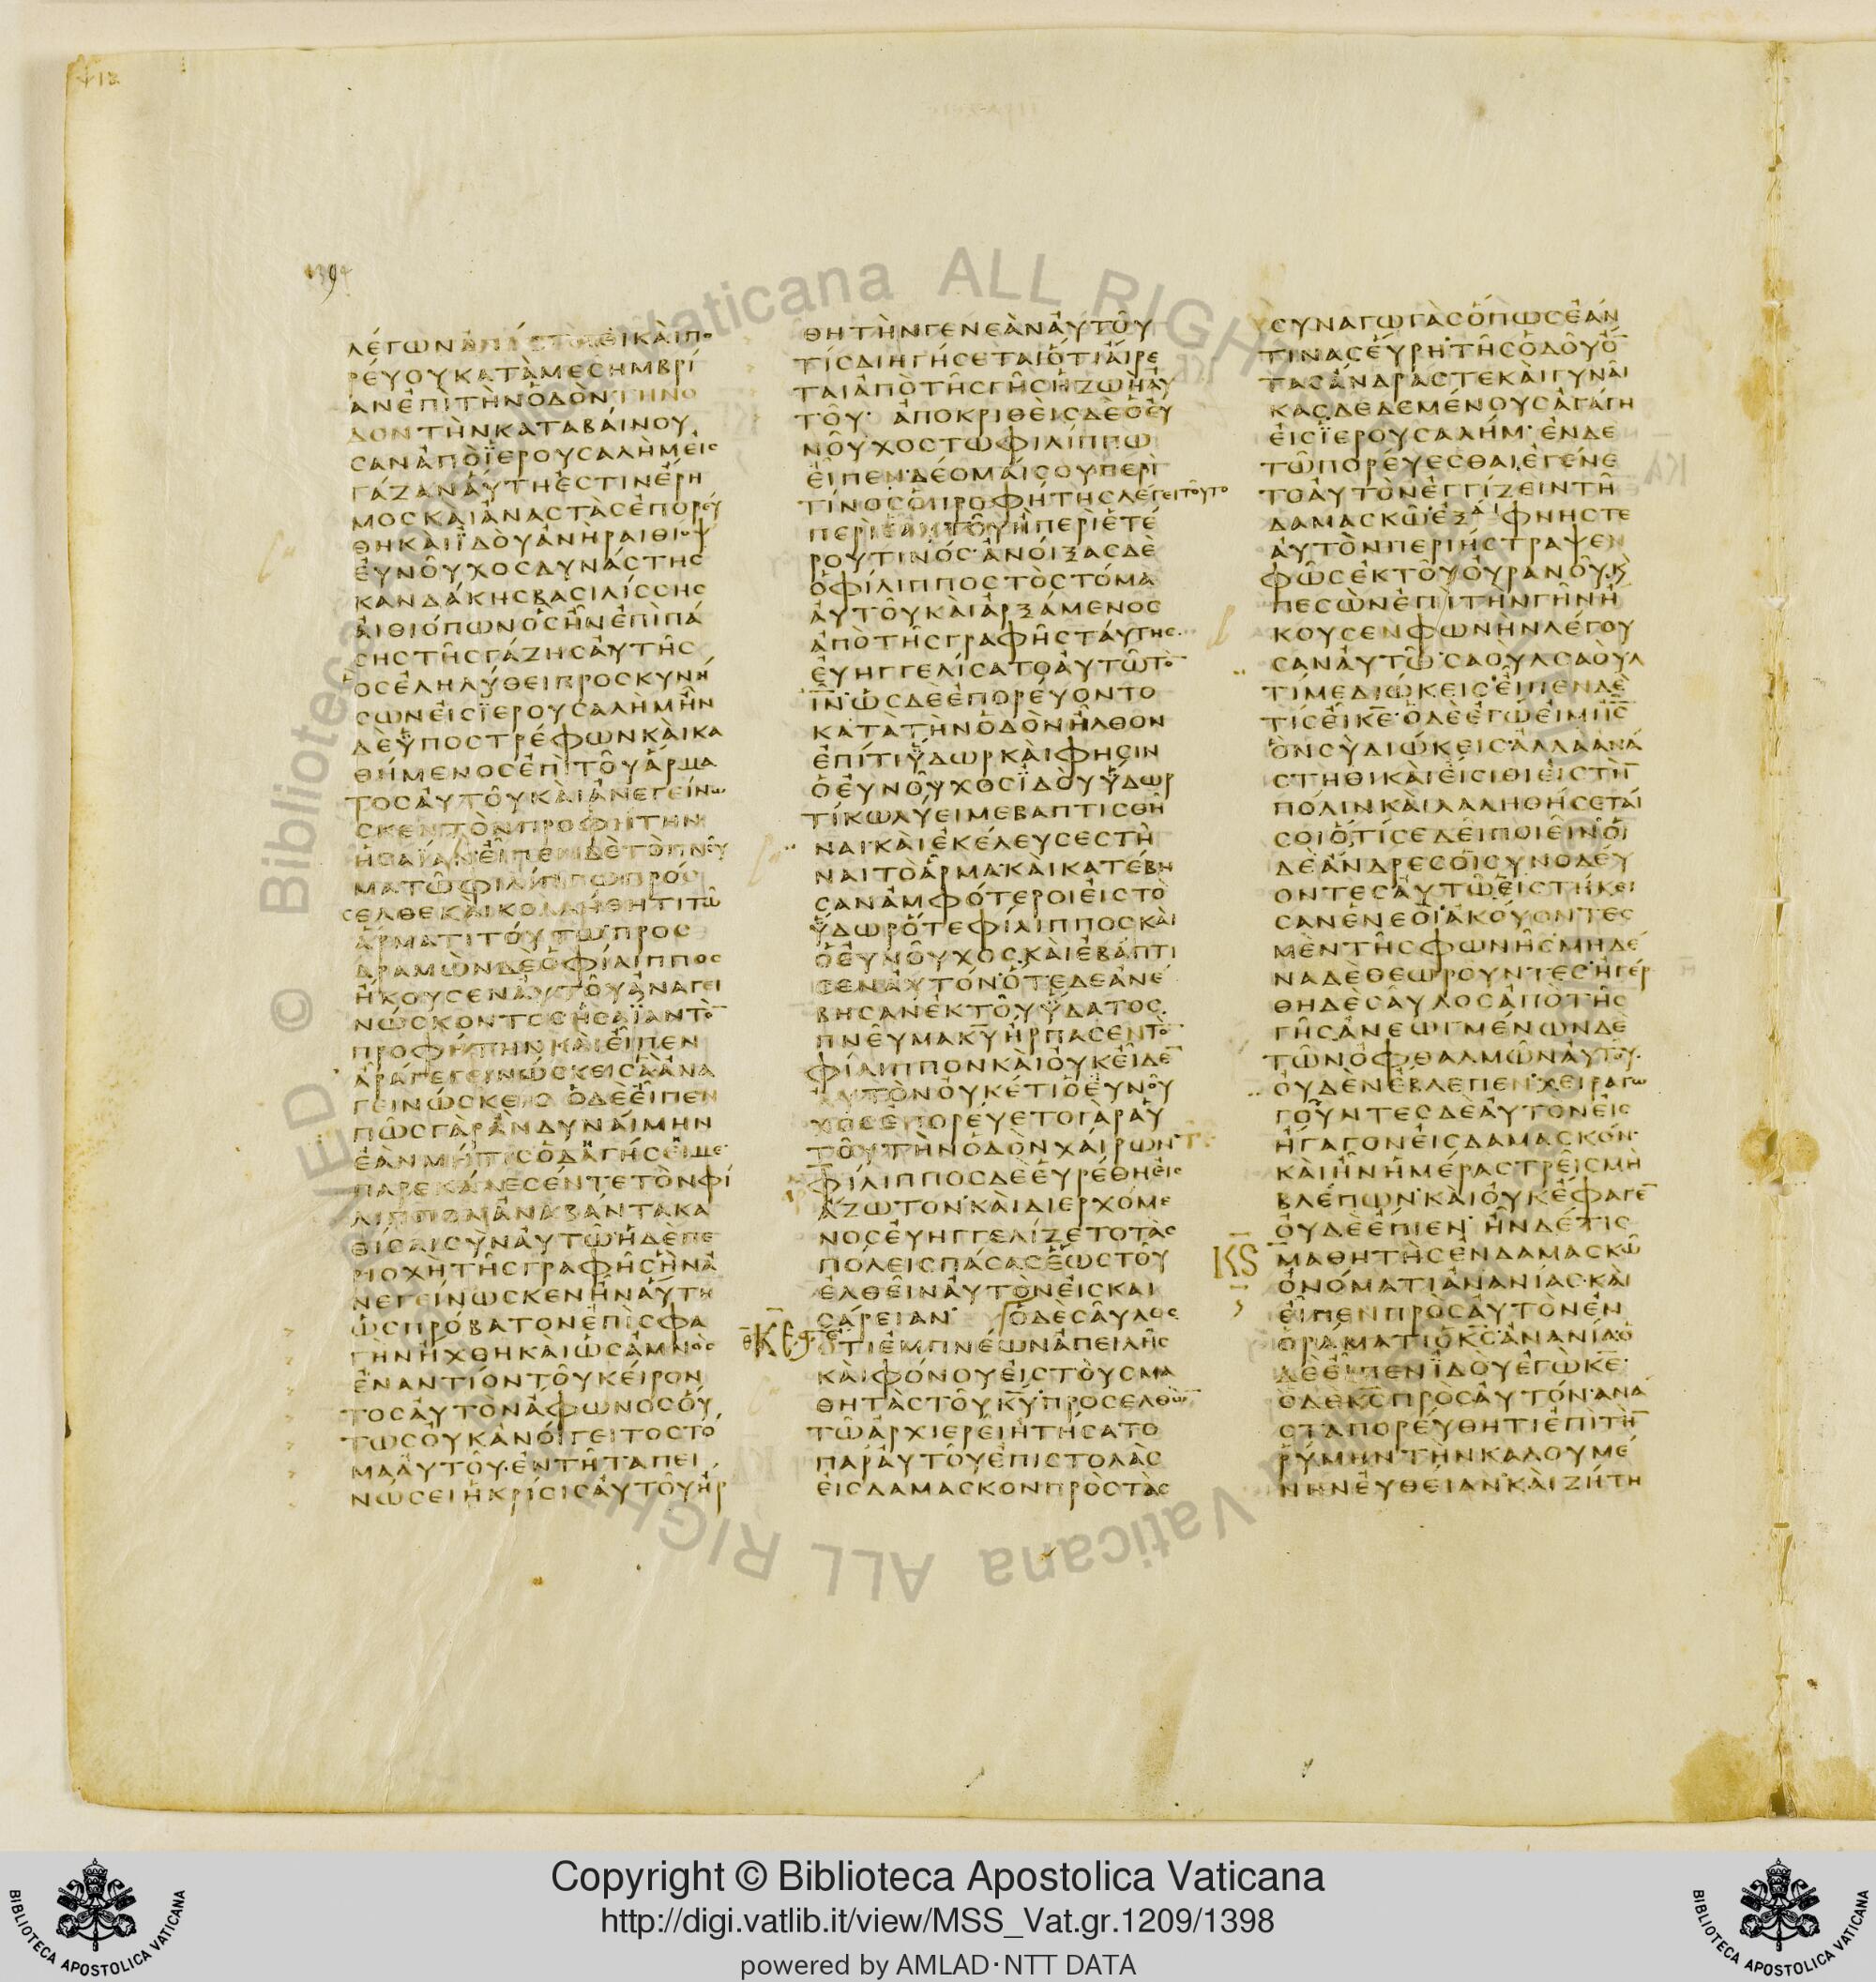 1394
λέγων ἀνάστηθι καὶ πο
ρεύου κατὰ μεσημβρί
αν ἐπὶ τὴν ὁδὸν
τὴν καταβαίνου
σαν ἀπὸ ϊερουσαλὴμ εἰς
γάζαν αὕτη ἐστὶν ἔρη
μος καὶ ἀναστὰς ἐπορεύ
θη καὶ ϊδοὺ ἀνὴρ αἰθίοψ
εὐνοῦχος δυνάστης
κανδάκης βασιλίσσης
αἰθιόπων ὃς ἦν ἐπὶ πά
σης τῆς γάζης αὐτῆς
ὃς ἐληλύθει προσκυνή
σων εἰς ϊερουσαλὴμ ἦν
δὲ ϋποστρέφων καὶ κα
θήμενος ἐπὶ τοῦ ἅρμα
τος αὐτοῦ καὶ ἀνεγείνω
σκεν τὸν προφήτην
ἠσαΐαν εἶπεν δὲ τὸ πνεῦ
μα τῷ φιλίππῳ πρόσ
ελθε καὶ κολλήθητι τῷ
ἅρματι τούτῳ προσ
δραμὼν δὲ ὁ φίλιππος
ἤκουσεν αὐτοῦ ἀναγει
νώσκοντος ἠσαΐαν τὸ̅
προφήτην καὶ εἶπεν
ἆρά γε γεινώσκεις ἃ ἀνα
γεινώσκεις ὁ δὲ εἶπεν
πῶς γὰρ ἂν δυναίμην
ἐὰν μή τις ὁδηγήσει με
παρεκάλεσέν τε τὸν φί
λιππον ἀναβάντα κα
θίσαι σὺν αὐτῷ ἡ δὲ πε
ριοχὴ τῆς γραφῆς ἣν ἀ
νεγείνωσκεν ἦν αὕτη
ὡς πρόβατον ἐπὶ σφα
γὴν ἤχθη καὶ ὡς ἀμνὸς
ἐναντίον τοῦ κείρον
τος αὐτὸν ἄφωνος οὕ
τως οὐκ ἀνοίγει τὸ στό
μα αὐτοῦ. ἐν τῇ ταπει
νώσει ἡ κρίσις αὐτοῦ ἤρ
θη τὴν γενεὰν αὐτοῦ
τίς διηγήσεται ὅτι αἴρε
ται ἀπὸ τῆς γῆς ἡ ζωὴ αὐ
τοῦ· ἀποκριθεὶς δὲ ὁ εὐ
νοῦχος τῷ φιλίππῳ
εἶπεν· δέομαί σου περὶ
τίνος ὁ προφήτης λέγει τοῦτο
περὶ ἑαυτοῦ ἢ περὶ ἑτέ
ρου τινός· ἀνοίξας δὲ
ὁ φίλιππος τὸ στόμα
αὐτοῦ καὶ ἀρξάμενος
ἀπὸ τῆς γραφῆς ταύτης
εὐηγγελίσατο αὐτῷ τὸ̅
ι̅ν̅· ὡς δὲ ἐπορεύοντο
κατὰ τὴν ὁδὸν ἦλθον
ἐπί τι ϋδωρ καὶ φησὶν
ὁ εὐνοῦχος ϊδοὺ ϋδωρ
τί κωλύει με βαπτισθῆ
ναι· καὶ ἐκέλευσε στῆ
ναι τὸ ἅρμα· καὶ κατέβη
σαν ἀμφότεροι εἰς τὸ
ϋδωρ ὅ τε φίλιππος καὶ
ὁ εὐνοῦχος καὶ ἐβάπτι
σεν αὐτόν· ὅτε δὲ ἀνέ
βησαν ἐκ τοῦ ϋδατος
πνεῦμα κ̅υ̅ ἥρπασεν τὸ̅
φίλιππον καὶ οὐκ εἶδε̅
αὐτὸν οὐκέτι ὁ εὐνοῦ
χος ἐπορεύετο γὰρ αὐ
τοῦ τὴν ὁδὸν χαίρων
φίλιππος δὲ εὑρέθη εἰς
ἄζωτον· καὶ διερχόμε
νος εὐηγγελίζετο τὰς
πόλεις πάσας ἕως τοῦ
ἐλθεῖν αὐτὸν εἰς και
σάρειαν· ὁ δὲ σαῦλος
Κ̅Ε̅ ἔτι ἐμπνέων ἀπειλῆς
καὶ φόνου εἰς τοὺς μα
θητὰς τοῦ κ̅υ̅· προσελθὼ̅
τῷ ἀρχιερεῖ ᾐτήσατο
παρ' αὐτοῦ ἐπιστολὰς
εἰς δαμασκὸν πρὸς τὰς
συναγωγὰς ὅπως ἐάν
τινας εὕρῃ τῆς ὁδοῦ ὄ̅
τας ἄνδρας τε καὶ γυναῖ
κας δεδεμένους ἀγάγῃ
εἰς ϊερουσαλήμ· ἐν δε
τῷ πορεύεσθαι ἐγένε
το αὐτὸν ἐγγίζειν τῇ
δαμασκῷ ἐξαίφνης τε
αὐτὸν περιήστραψεν
φῶς ἐκ τοῦ οὐρανοῦ κ̀
πεσὼν ἐπὶ τὴν γῆν ἤ
κουσεν φωνὴν λέγου
σαν αὐτῷ· σαοὺλ σαοὺλ
τί με διώκεις· εἶπεν δὲ
τίς εἶ κ̅ε̅· ὁ δὲ ἐγώ εἰμι ι̅ς̅
ὃν σὺ διώκεις· ἀλλὰ ἀνά
στηθι καὶ εἴσιθι εἰς τὴ̅
πόλιν καὶ λαληθήσεταί
σοι ὅ τί σε δεῖ ποιεῖν οἱ
δὲ ἄνδρες οἱ συνοδεύ
οντες αὐτῷ εἱστήκει
σαν ἐνεοί ἀκούοντες
μὲν τῆς φωνῆς· μηδέ
να δὲ θεωροῦντες· ἠγέρ
θη δὲ σαῦλος ἀπὸ τῆς
γῆς ἀνεῳγμένων δὲ
τῶν ὀφθαλμῶν αὐτοῦ
οὐδὲν ἔβλεπεν· χειραγω
γοῦντες δὲ αὐτὸν εἰς
ήγαγον εἰς δαμασκόν·
καὶ ἦν ἡμέρας τρεῖς μὴ
βλέπων· καὶ οὐκ ἔφαγε̅
οὐδὲ ἔπιεν· ἦν δέ τις
Κ̅Ϛ̅ μαθητὴς ἐν δαμασκῷ
ὀνόματι ἁνανίας· καὶ
εἶπεν πρὸς αὐτὸν ἐν
ὁράματι ὁ κ̅ς̅ ἁνανία ὁ
δὲ εἶπεν ϊδοὺ ἐγὼ κ̅ε̅·
ὁ δὲ κ̅ς̅ πρὸς αὐτόν· ανα
στα πορεύθητι ἐπὶ τὴ̅
ῥύμην τὴν καλουμέ
νην εὐθεῖαν· καὶ ζήτη
Copyright © Biblioteca Apostolica Vaticana
http://digi.vatlib.it/view/MSS_Vat.gr.1209/1398
powered by AMLAD·NTT DATA
BIBLIOTECA APOSTOLICA VATICANA
BIBLIOTECA APOSTOLICA VATICANA